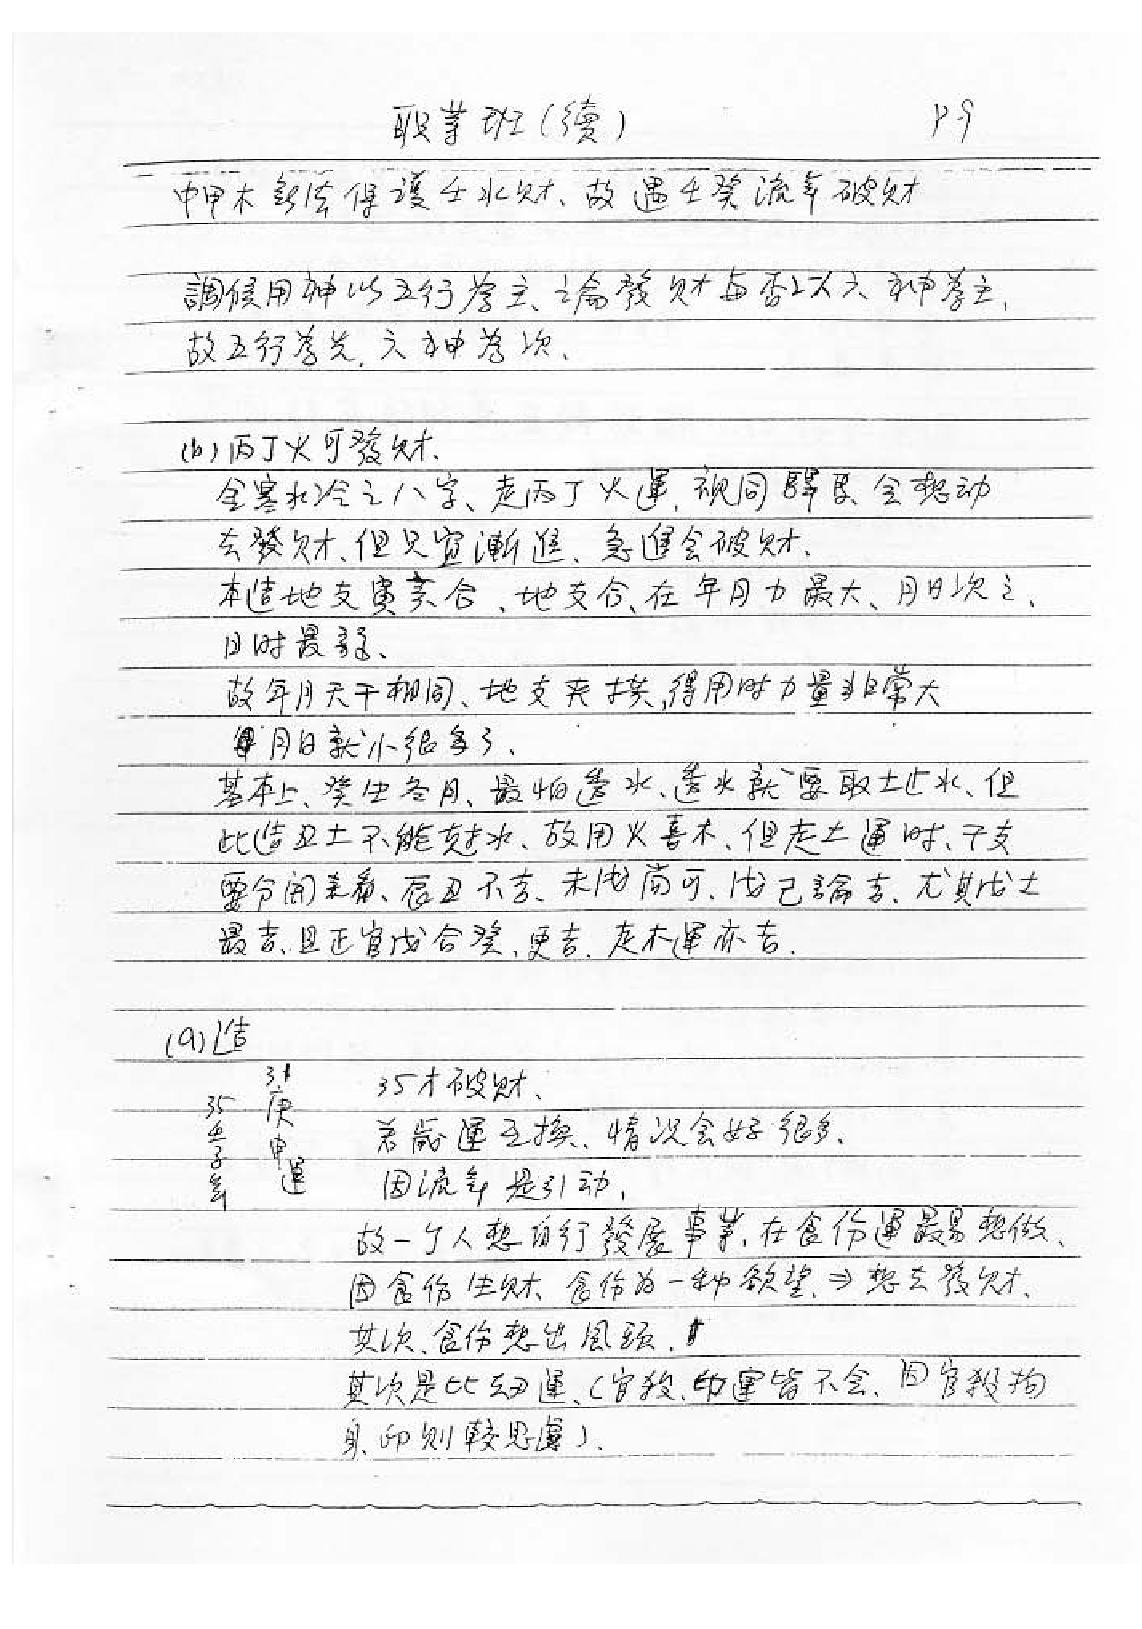 职業班(續) P9
中甲木無法保護壬水财、故遇壬癸流年破财
調候用神以五行為主、論發财与否以六神為主,
故五行為先,六神為次、
(b)丙丁火可發财、
金寒水冷之八字、走丙丁火運,視同驛馬、会想动
去發财、但只宜漸進、急進会破财、
本造地支寅亥合、地支合、在年月力最大、月日次之、
日时最弱、
故年月天干相同、地支夾拱,得用时力量非常大
月日就小很多了、
基本上、癸生冬月、最怕透水、透水就要取土止水、但
此造丑土不能尅水、故用火喜木、但走土運时、干支
要分開来看、辰丑不吉、未戌尚可、戊己論吉、尤其戊土
最吉、且正官戊合癸、更吉、走木運亦吉.
(a)造
31庚申運
35丙子年
35才破财、
若歲運互換、情况会好很多、
因流年是引动,
故一个人想自行發展事業、在食伤運最易想做、
因食伤生财、食伤为一种欲望、⇒想去發财、
其次、食伤想出風頭、
其次是比劫運、(官殺、印運皆不会、因官殺拘
身、印则較思慮)、